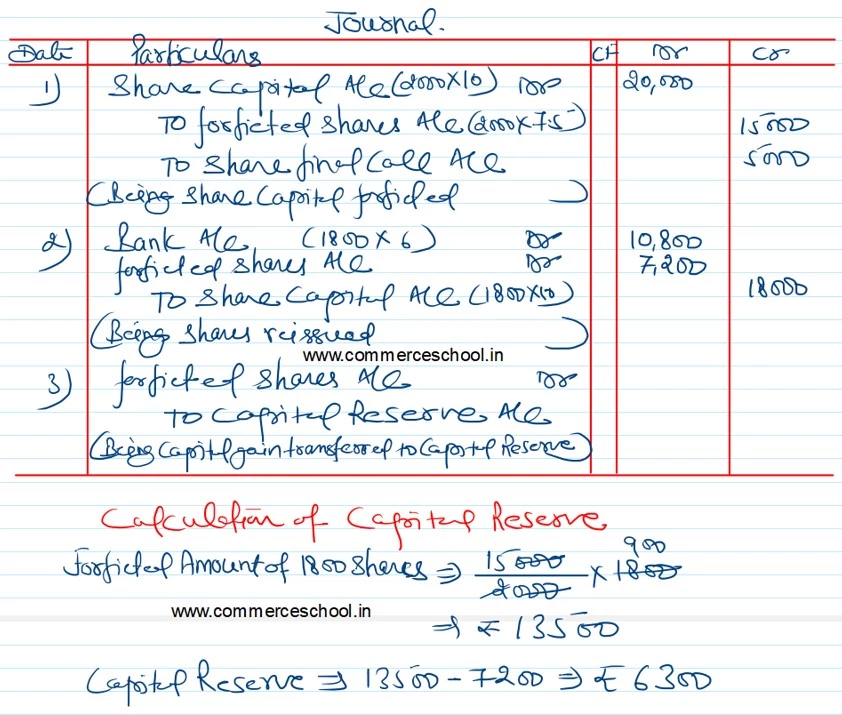 Journal.
Date Particulars CF Dr Cr
1) Share Capital A/c (2000X10) Dr 20,000
To forficted shares A/c (2000X7.5) 15000
To Share final Call A/c 5000
(Being Share Capital forficted)
2) Bank A/c (1800X6) Dr 10,800
forficted shares A/c Dr 7,200
To Share Capital A/c (1800X10) 18000
(Being shares reissued)
www.commerceschool.in
3) forficted shares A/c Dr
To Capital Reserve A/c
(Being Capital gain transferred to Capital Reserve)
Calculation of Capital Reserve
900
Forficted Amount of 1800 Shares ⇒ 15000/2000 X 1800
www.commerceschool.in
⇒ ₹ 13500
Capital Reserve ⇒ 13500 - 7200 ⇒ ₹ 6300